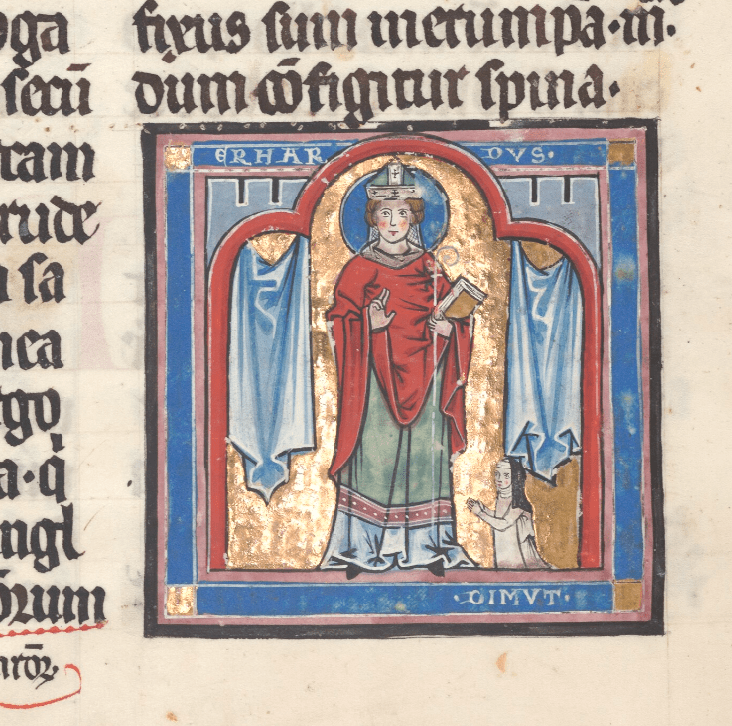 oga
secū
tam
rude
sa
nea
go
a·q̇
ngl
orum
fixus sum metum pa·m·
dum cōfigitur spina·
ERHAR DVS·
·DIMVT·